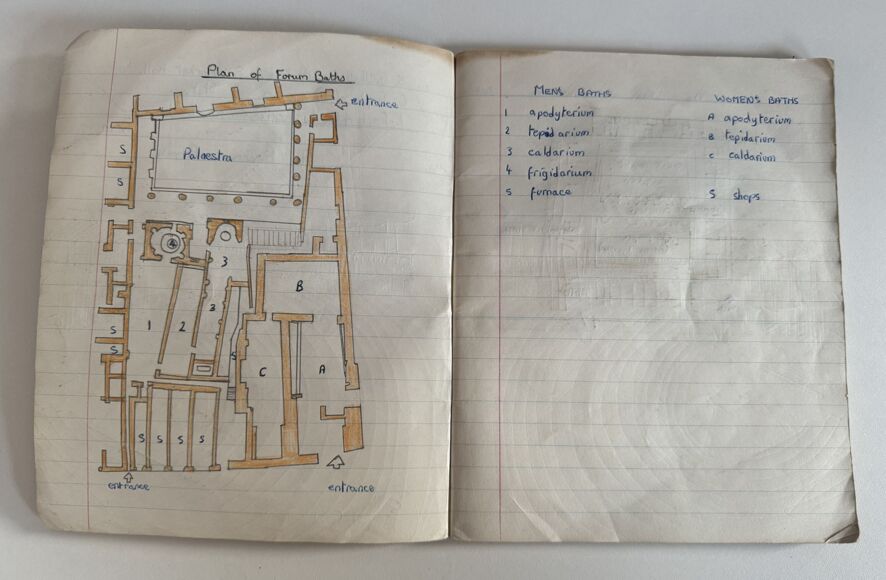 Plan of Forum Baths
entrance
Palaestra
S
S
4
3
B
1
2
3
S
S
S
C
A
S
S
S
S
entrance
entrance
MENS BATHS
1 apodyterium
2 tepidarium
3 caldarium
4 frigidarium
5 furnace
WOMENS BATHS
A apodyterium
B tepidarium
C caldarium
S shops